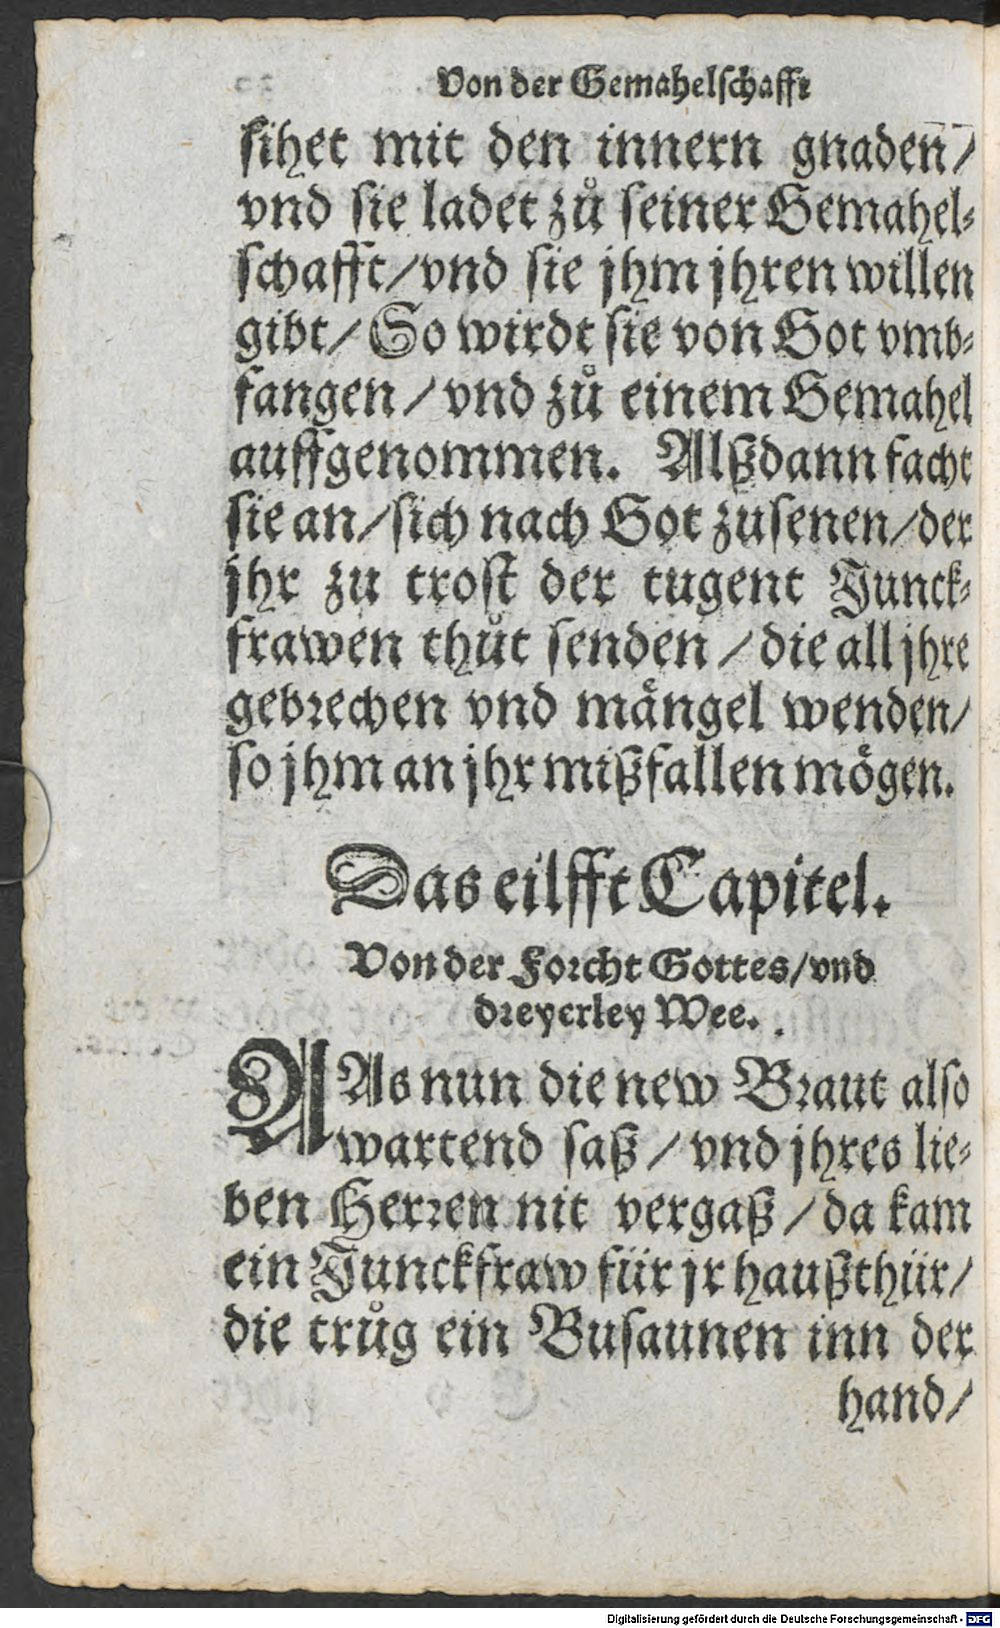 Von der Gemahelschafft
sihet mit den innern gnaden/
vnd sie ladet zů seiner Gemahel-
schafft/vnd sie jhm jhren willen
gibt/ So wirdt sie von Got vmb-
fangen/vnd zů einem Gemahel
auffgenommen. Alßdann facht
sie an/sich nach Got zusenen/der
jhr zu trost der tugent Junck-
frawen thůt senden/die all jhre
gebrechen vnd mängel wenden/
so jhm an jhr mißfallen mögen.
Das eilfft Capitel.
Von der Forcht Gottes/vnd
dreyerley Wee.
AAs nun die new Braut also
wartend saß/vnd jhres lie-
ben Herren nit vergaß/da kam
ein Junckfraw für jr haußthür/
die trůg ein Busaunen inn der
hand/
Digitalisierung gefördert durch die Deutsche Forschungsgemeinschaft - DFG